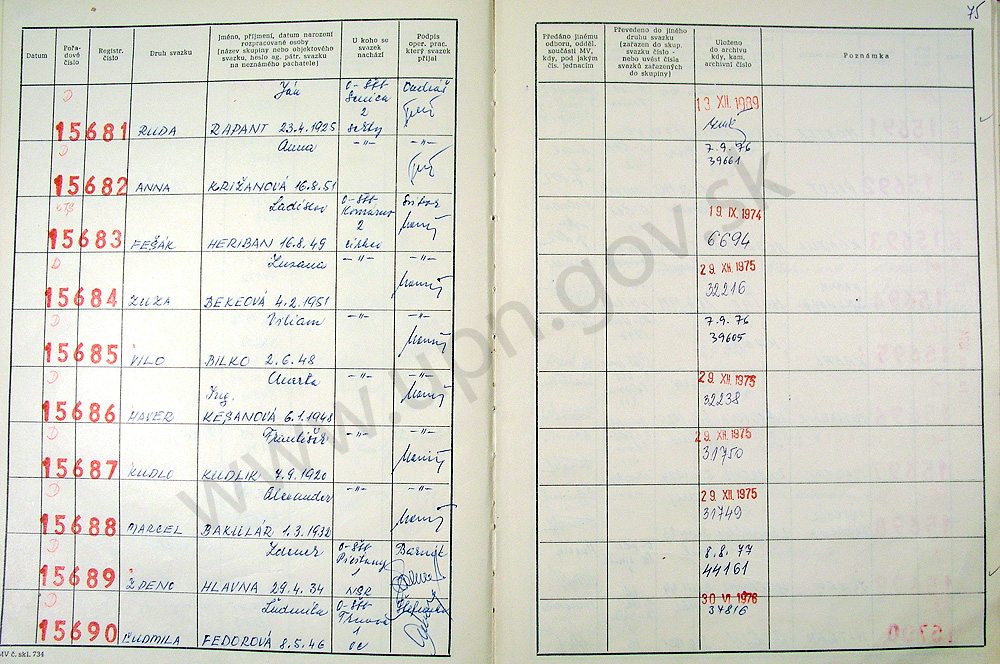 75
Datum
Pořa-
dové
číslo
Registr.
číslo
Druh svazku
Jméno, příjmení, datum narození
rozpracované osoby
(název skupiny nebo objektového
svazku, heslo ag. pátr. svazku
na neznámého pachatele)
U koho se
svazek
nachází
Podpis
oper. prac.
který svazek
přijal
Předáno jinému
odboru, odděl.
součásti MV,
kdy, pod jakým
čís. jednacím
Převedeno do jiného
druhu svazku
(zařazen do skup.
svazku číslo -
nebo uvést čísla
svazků zařazených
do skupiny)
Uloženo
do archivu
kdy, kam,
archivní číslo
Poznámka
D Ján O-ŠtB
Senica
2
15681 RUDA RAPANT 23.4.1925
13 XII. 1989
D Anna -"- -"-
15682 ANNA KRIŽANOVÁ 16.8.51
7.9.76
39661
Ladislav O-ŠtB
Komárno
2
15683 FEŠÁK HERIBAN 16.8.49
19 IX. 1974
6694
D Zuzana -"- -"-
15684 ZUZA BEKEOVÁ 4.2.1951
29 XII. 1975
32216
D Viliam -"- -"-
15685 VILO BILKO 2.6.48
7.9.76
39605
D Marta -"- -"-
Ing.
15686 HAVER KEŠANOVÁ 6.1.1948
29 XII. 1975
32238
D František -"- -"-
15687 KUDLO KUDLIK 7.9.1920
29 XII. 1975
31750
D Alexander -"- -"-
15688 MARCEL BAKULÁR 1.3.1932
29 XII. 1975
31749
D O-ŠtB
Piešťany
1
15689 ZDENO HLAVNA 29.4.34 NSR
8.8.77
44161
D Ľudmila O-ŠtB
Trnava
1
15690 ĽUDMILA FEDOROVÁ 8.5.46
30 VI 1976
34816
MV č. skl. 734
www.upn.gov.sk